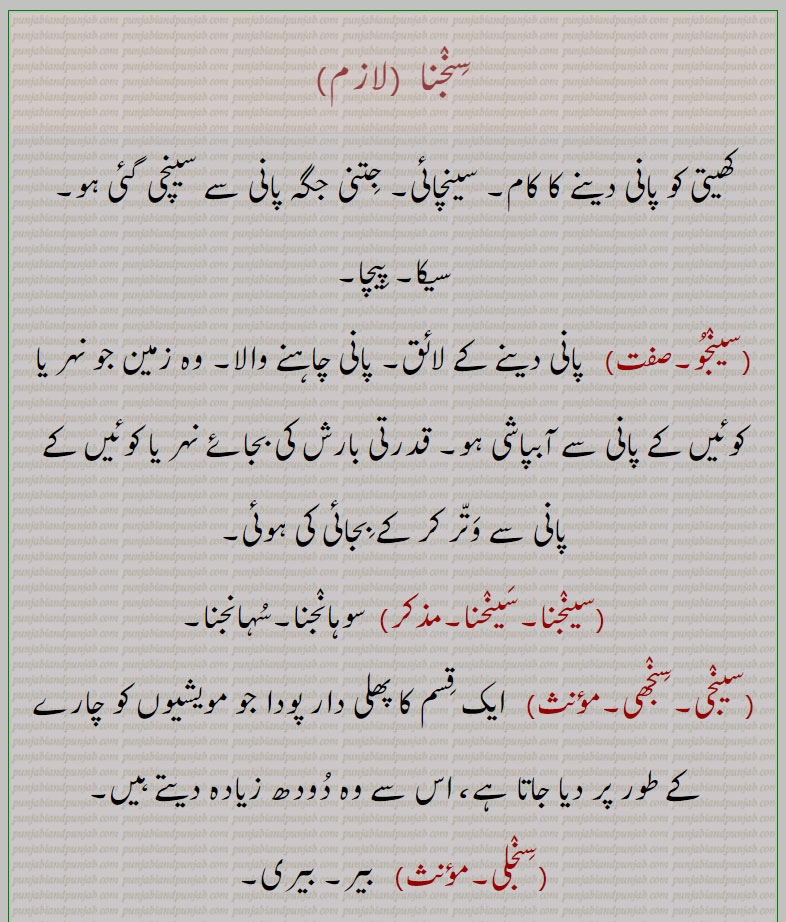 سِنْجنا (لازم)
کھیتی کو پانی دینے کا کام۔ سینچائی۔ جِتنی جگہ پانی سے سینچی گئی ہو۔
سیکا۔ پِیچا۔
(سینْجُو۔صفت) پانی دینے کے لائق۔ پانی چاہنے والا۔ وہ زمین جو نہر یا
کوئیں کے پانی سے آبپاشی ہو۔ قدرتی بارش کی بجائے نہر یا کوئیں کے
پانی سے وَتّر کر کے بِجائی کی ہوئی۔
(سینْجنا۔سَینْحنا۔مذکر) سوہانْجنا۔سُہانجنا۔
(سینْجی۔سِنْجھی۔مؤنث) ایک قِسم کا پھلی دار پودا جو مویشیوں کو چارے
کے طور پر دیا جاتا ہے، اس سے وہ دُودھ زیادہ دیتے ہیں۔
(سِنْجلی۔مؤنث) بیر۔ بیری۔